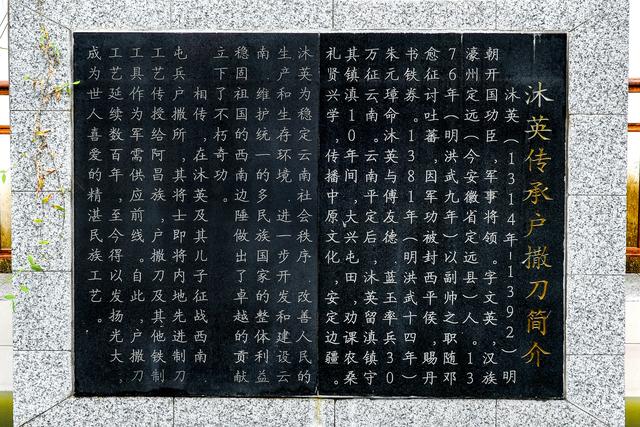 沐英传承户撒刀简介
沐英（1314年-1392）明
朝开国功臣，军事将领。字文英，汉族
濠州定远（今安徽省定远县）人。13
76年（明洪武九年）以副帅之职随邓
愈征讨吐蕃，因军功被封西平侯，赐丹
书铁券。1381年（明洪武十四年）
朱元璋命沐英与傅友德、蓝玉率兵30
万征云南。云南平定后，沐英留滇镇守
其镇滇10年间，大兴屯田，劝课农桑
礼贤兴学，传播中原文化，安定边疆。
沐英为稳定云南社会秩序 改善人民的
生产和生存环境 进一步开发和建设云
南 维护统一的多民族国家的整体利益
稳固祖国的西南边陲做出了卓越的贡献
立下了不朽奇功。
相传，在沐英及其儿子征战西南
屯兵户撒所，其将士即将内地先进制刀
工艺传授给阿昌族，户撒刀及其他铁制
工具作为军需供应前线。自此，户撒刀
工艺延续数百年，至今得以发扬光大，
成为世人喜爱的精湛民族工艺。